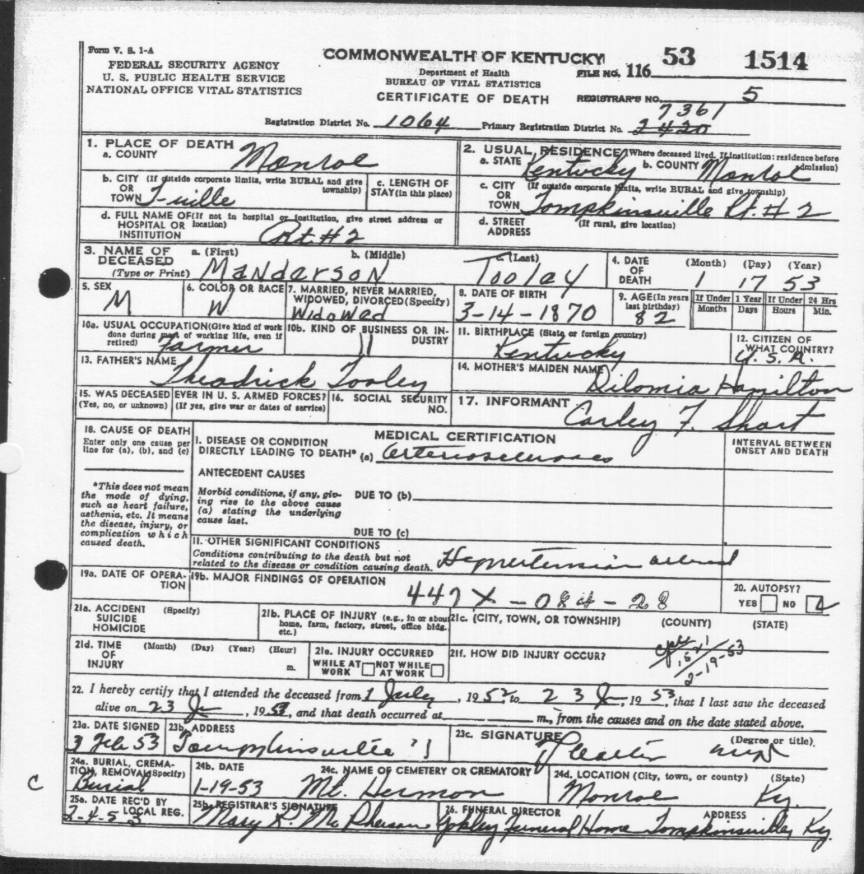 Form V. S. 1-A
FEDERAL SECURITY AGENCY
U. S. PUBLIC HEALTH SERVICE
NATIONAL OFFICE VITAL STATISTICS
COMMONWEALTH OF KENTUCKY
Department of Health
BUREAU OF VITAL STATISTICS
CERTIFICATE OF DEATH
FILE NO. 116 53 1514
REGISTRAR'S NO. 5
7361
Registration District No. 1064 Primary Registration District No. 2420
1. PLACE OF DEATH
a. COUNTY Monroe
2. USUAL RESIDENCE (Where deceased lived. If institution: residence before admission)
a. STATE Kentucky b. COUNTY Monroe
b. CITY (If outside corporate limits, write RURAL and give township)
OR TOWN T-ville
c. LENGTH OF STAY (in this place)
c. CITY (If outside corporate limits, write RURAL and give township)
OR TOWN Tompkinsville Rt. # 2
d. FULL NAME OF (If not in hospital or institution, give street address or location)
HOSPITAL OR INSTITUTION Rt # 2
d. STREET ADDRESS (If rural, give location)
3. NAME OF DECEASED (Type or Print)
a. (First) b. (Middle) (Last)
Manderson Tooley
4. DATE OF DEATH (Month) (Day) (Year)
1 17 53
5. SEX M
6. COLOR OR RACE W
7. MARRIED, NEVER MARRIED, WIDOWED, DIVORCED (Specify) Widowed
8. DATE OF BIRTH 3-14-1870
9. AGE (In years last birthday) 82
If Under 1 Year Months Days
If Under 24 Hrs Hours Min.
10a. USUAL OCCUPATION (Give kind of work done during most of working life, even if retired) Farmer
10b. KIND OF BUSINESS OR INDUSTRY "
11. BIRTHPLACE (State or foreign country) Kentucky
12. CITIZEN OF WHAT COUNTRY? U. S. A.
13. FATHER'S NAME Theadrick Tooley
14. MOTHER'S MAIDEN NAME Dilomia Hamilton
15. WAS DECEASED EVER IN U. S. ARMED FORCES?
(Yes, no, or unknown) (If yes, give war or dates of service)
16. SOCIAL SECURITY NO.
17. INFORMANT Corley F. Short
18. CAUSE OF DEATH
Enter only one cause per line for (a), (b), and (c)
MEDICAL CERTIFICATION
INTERVAL BETWEEN ONSET AND DEATH
I. DISEASE OR CONDITION
DIRECTLY LEADING TO DEATH* (a) arteriosclerosis
ANTECEDENT CAUSES
*This does not mean the mode of dying, such as heart failure, asthenia, etc. It means the disease, injury, or complication which caused death.
Morbid conditions, if any, giving rise to the above cause (a) stating the underlying cause last.
DUE TO (b)
DUE TO (c)
II. OTHER SIGNIFICANT CONDITIONS
Conditions contributing to the death but not related to the disease or condition causing death. Hypertension
19a. DATE OF OPERATION
19b. MAJOR FINDINGS OF OPERATION
447X - 084 - 28
20. AUTOPSY?
YES NO
21a. ACCIDENT SUICIDE HOMICIDE (Specify)
21b. PLACE OF INJURY (e.g., in or about home, farm, factory, street, office bldg. etc.)
21c. (CITY, TOWN, OR TOWNSHIP) (COUNTY) (STATE)
21d. TIME OF INJURY (Month) (Day) (Year) (Hour) m.
21e. INJURY OCCURRED
WHILE AT WORK NOT WHILE AT WORK
21f. HOW DID INJURY OCCUR?
2-19-53
22. I hereby certify that I attended the deceased from 1 July, 1952, to 23 J, 1953, that I last saw the deceased
alive on 23 J, 1953, and that death occurred at m., from the causes and on the date stated above.
23a. DATE SIGNED 3 Feb 53
23b. ADDRESS Tompkinsville
23c. SIGNATURE (Degree or title)
24a. BURIAL, CREMATION, REMOVAL (Specify) Burial
24b. DATE 1-19-53
24c. NAME OF CEMETERY OR CREMATORY Mt. Hermon
24d. LOCATION (City, town, or county) (State) Monroe Ky.
25a. DATE REC'D BY LOCAL REG. 2-4-53
25b. REGISTRAR'S SIGNATURE Mary R. McPherson
26. FUNERAL DIRECTOR ADDRESS
Yokley Funeral Home Tompkinsville, Ky.
C